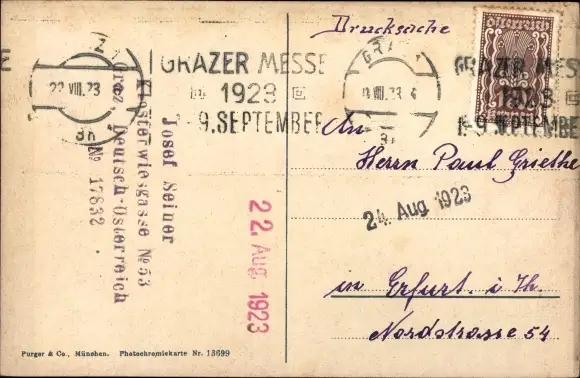 Drucksache
Österreich
GRAZ
22 VIII.23
GRAZER MESSE
1923
1.-9.SEPTEMBER
GRAZER MES
1923
1.-9.SEPTEMBE
Josef Seiner
Klosterwiesgasse № 53
Graz, Deutsch-Österreich
№ 17832
22. Aug 1923
24. Aug. 1923
An
Herrn Paul Griethe
in Erfurt. i Th.
Nordstrasse 54
Purger & Co., München. Photochromiekarte Nr. 13699